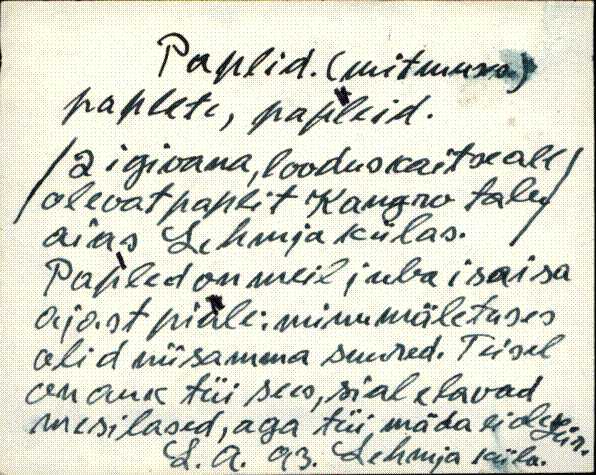 Paplid. (mitmuses)
paplete, papleid.
/2 igivana, looduskaitseall
olevat paplit Kangro talu
aias Lehmja külas./
Papled on meil juba isaisa
ajast piale: minu mäletuses
olid niisamma suured. Teisel
on auk tüi sees, sial elavad
mesilased, aga tüi mäda ei ole
L. A. 93. Lehmja küla.